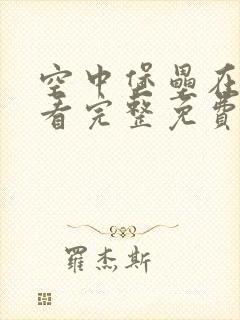 空中堡壘在
看完整免費
羅杰斯